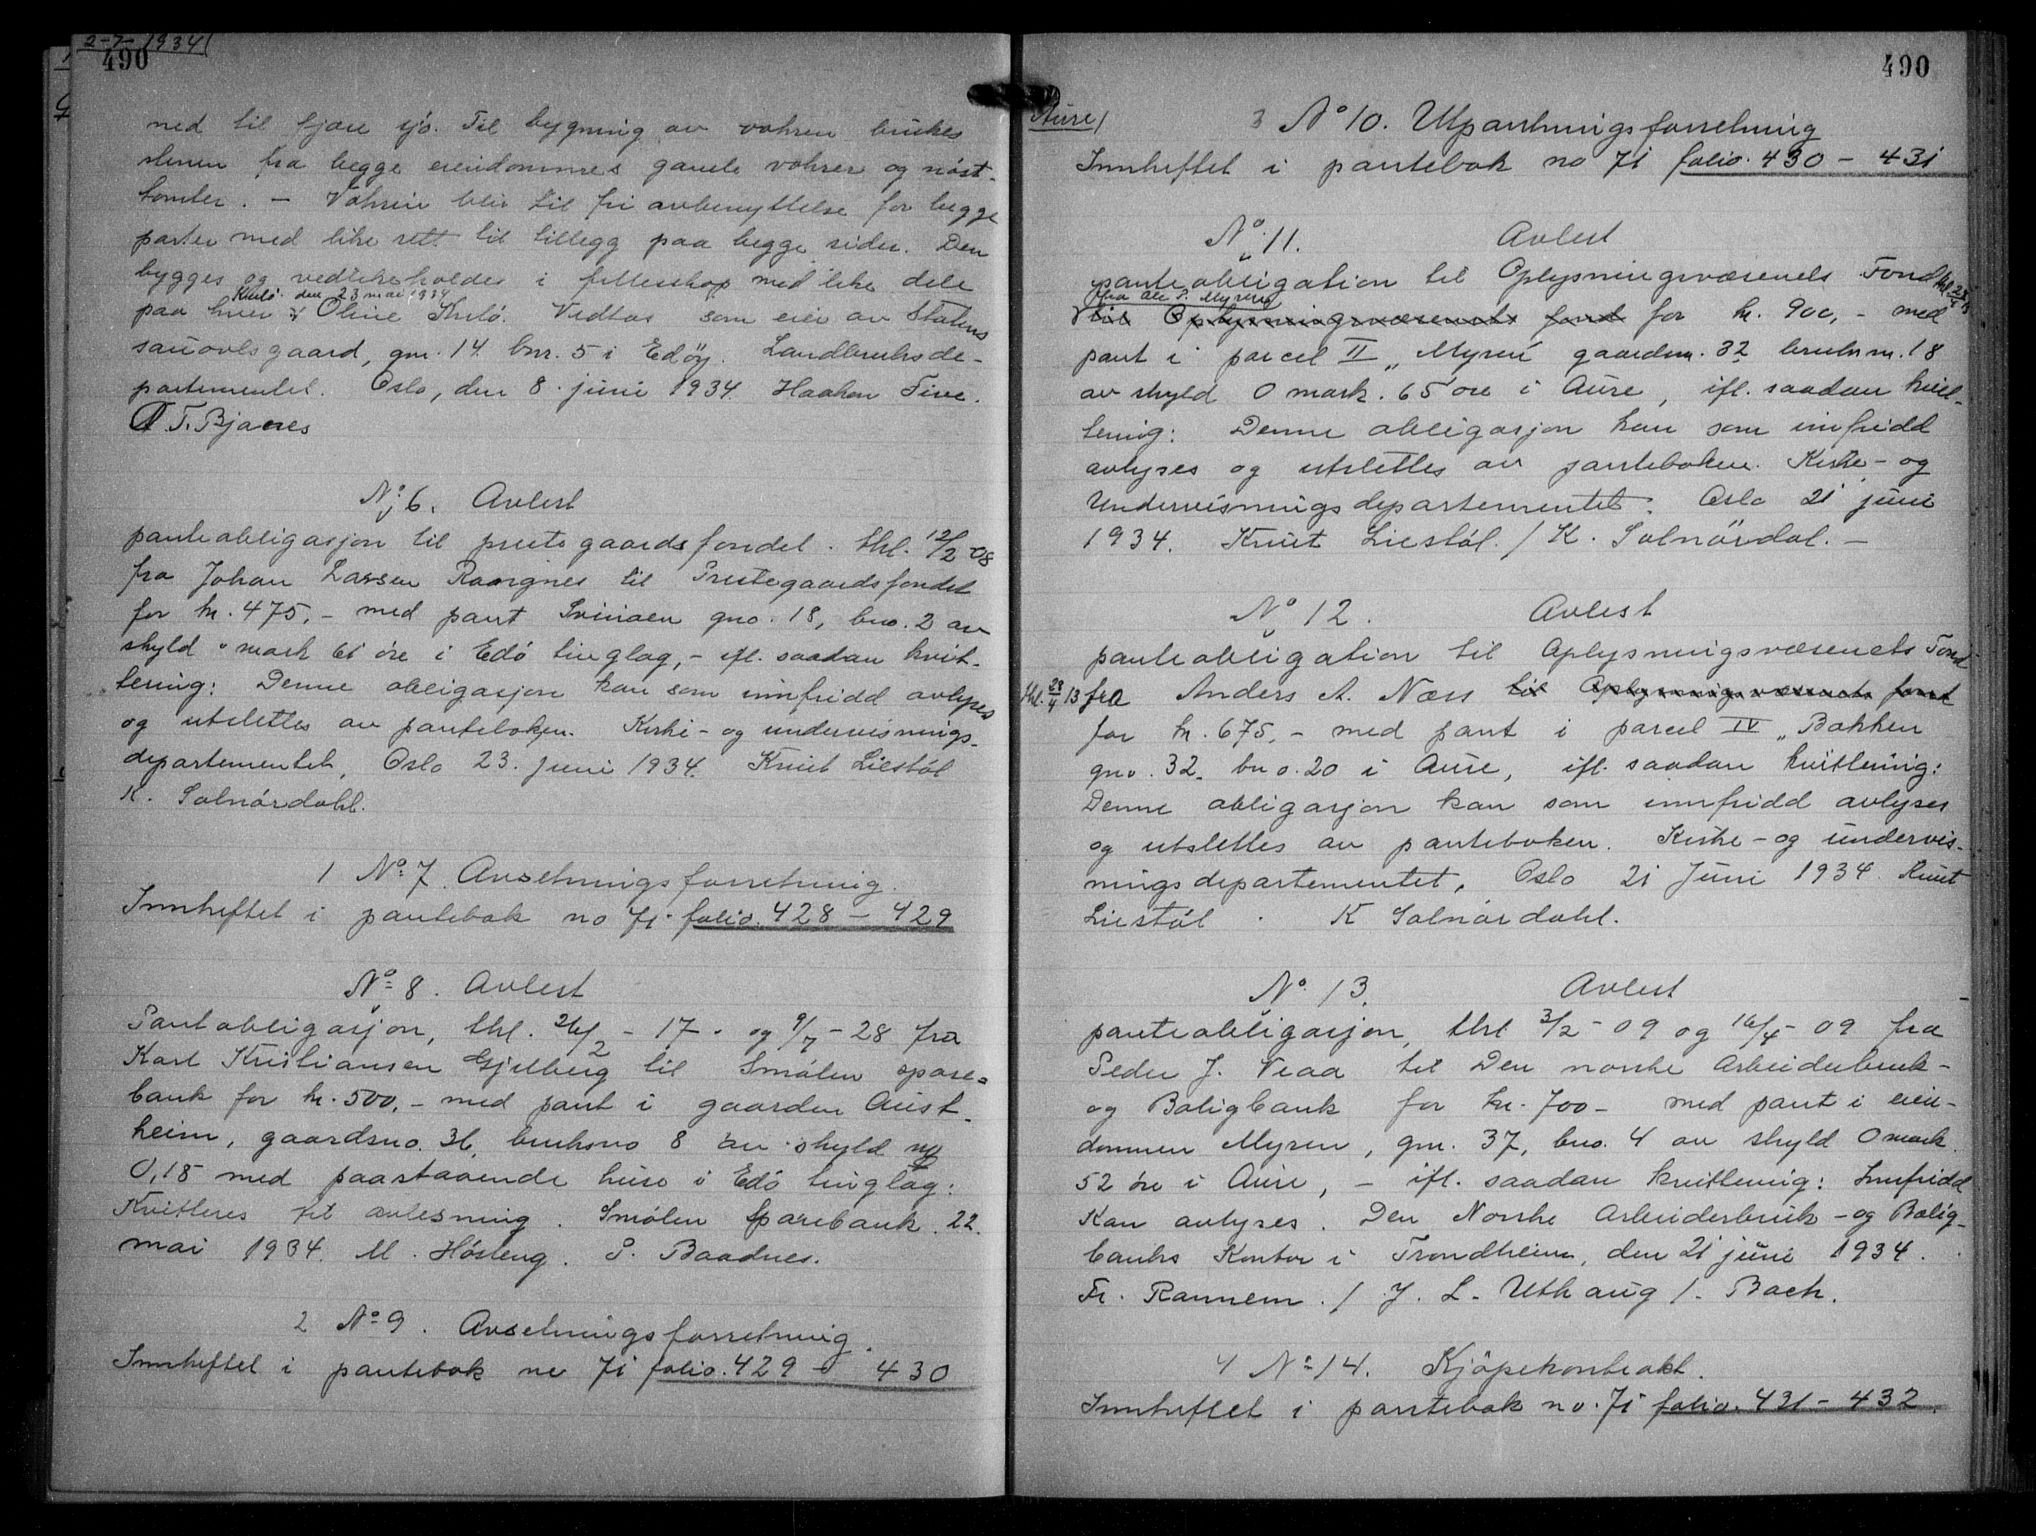 2-7-1934
490
ned til fjære sjö. Til bygning av vohren brukes
stenen fra begge eiendommes gamle vohrer og nöst-
tomter. - Vohren blir til fri avbenyttelse for begge
parter med like rett til tillegg paa begge sider. Den
bygges og vedlikeholdes i fellesskap med like dele
den 23 mai 1934
paa hver Oline. Vedtas som eier av Statens
sauavlsgaard, gnr. 14 bnr. 5 i Edöy. Landbruksde-
partementet. Oslo, den 8. juni 1934. Haakon Five.
T. Bjanes
No 6. Avlest
panteobligasjon til prestegaardsfondet. thl. 12/2-08
fra Johan Larsen Roksgnes til Prestegaardsfondet
for kr. 475,- med pant Svinaen gno. 18, bno. 2 av
skyld 0 mark 61 öre i Edö tinglag, - ifl. saadan kvit-
tering: Denne obligasjon kan som innfridd avlyses
og utslettes av panteboken. Kirke- og undervisnings-
departementet, Oslo 23. juni 1934. Knut Liestöl
K. Solnördahl.
1 No 7. Avsetningsforretning.
Innheftet i pantebok no 71 folio. 428 - 429
No 8. Avlest
Pantobligasjon, thl. 26/2 - 17. og 9/7 - 28 fra
Karl Kristiansen Gjelberg til Smölen spare-
bank for kr. 500,- med pant i gaarden Aust-
heim, gaardsno. 36, bruksno 8 av skyld
0,18 med paastaaende huse i Edö tinglag:
Kvitteres til avlesning. Smölen Sparebank 22.
mai 1934. M. Hösteng. P. Baadnes.
2 No 9. Avsetningsforretning.
Innheftet i pantebok no 71 folio. 429 - 430
490
Aure/
3 No 10. Utpantningsforretning
Innheftet i pantebok no 71 folio. 430 - 431
No 11. Avlest
panteobligation til Oplysningsvæsenets Fond
fra Ole P. Myren
til Oplysningsvæsenets fond for kr. 900,- med
pant i parcel II „Myren gaardsnr. 32 bruksnr. 18
av skyld 0 mark. 65 öre i Aure, ifl. saadan kvit-
tering: Denne obligasjon kan som innfridd
avlyses og utslettes av panteboken. Kirke- og
Undervisningsdepartementet. Oslo 21 juni
1934. Knut Liestöl. / K. Solnördal. -
No 12. Avlest
panteobligation til Oplysningsvæsenets Fond
thl. 28/4 13 fra Anders A. Næss til Oplysningsvæsenets fond
for kr. 675,- med pant i parcel IV „Bakken
gno. 32. bno. 20 i Aure, ifl. saadan kvittering:
Denne obligasjon kan som innfridd avlyses
og utslettes av panteboken. Kirke- og undervis-
ningsdepartementet, Oslo 21 Juni 1934. Knut
Liestöl. K Solnördahl.
No 13. Avlest
panteobligasjon, thl 3/2 - 09 og 16/4 - 09 fra
Peder J. Viaa til Den norske Arbeiderbruk-
og Boligbank for kr. 700- med pant i eien-
dommen Myren, gnr. 37, bno. 4 av skyld 0 mark
52 öre i Aure, - ifl. saadan kvittering: Innfridd
Kan avlyses. Den Norske Arbeiderbruk- og Bolig-
banks Kontor i Trondheim, den 21 juni 1934.
Fr. Rannem. / J. L. Uthaug /. Bach.
4 No 14. Kjöpekontrakt.
Innheftet i pantebok no. 71 folio. 431 - 432.